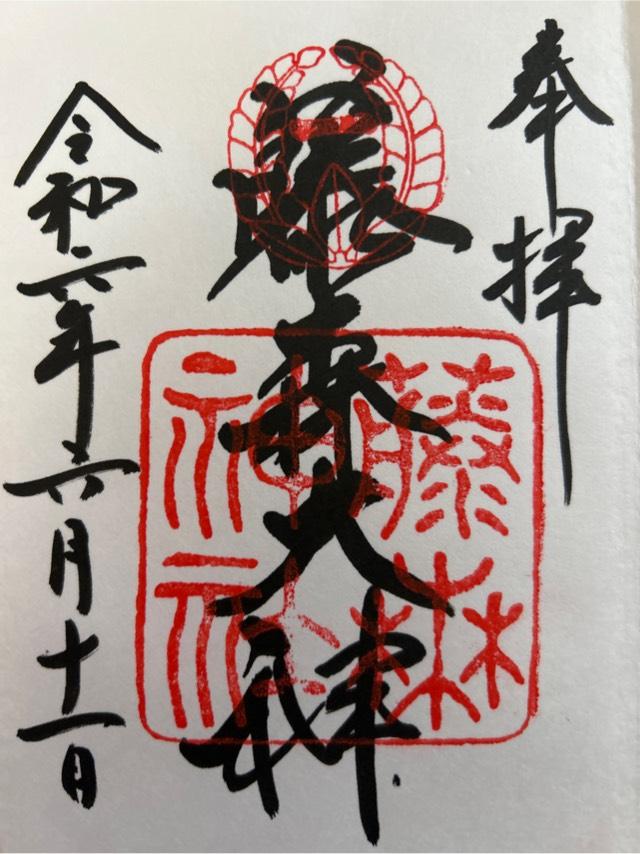 奉拝
藤森大神
藤森神社
令和六年六月十一日